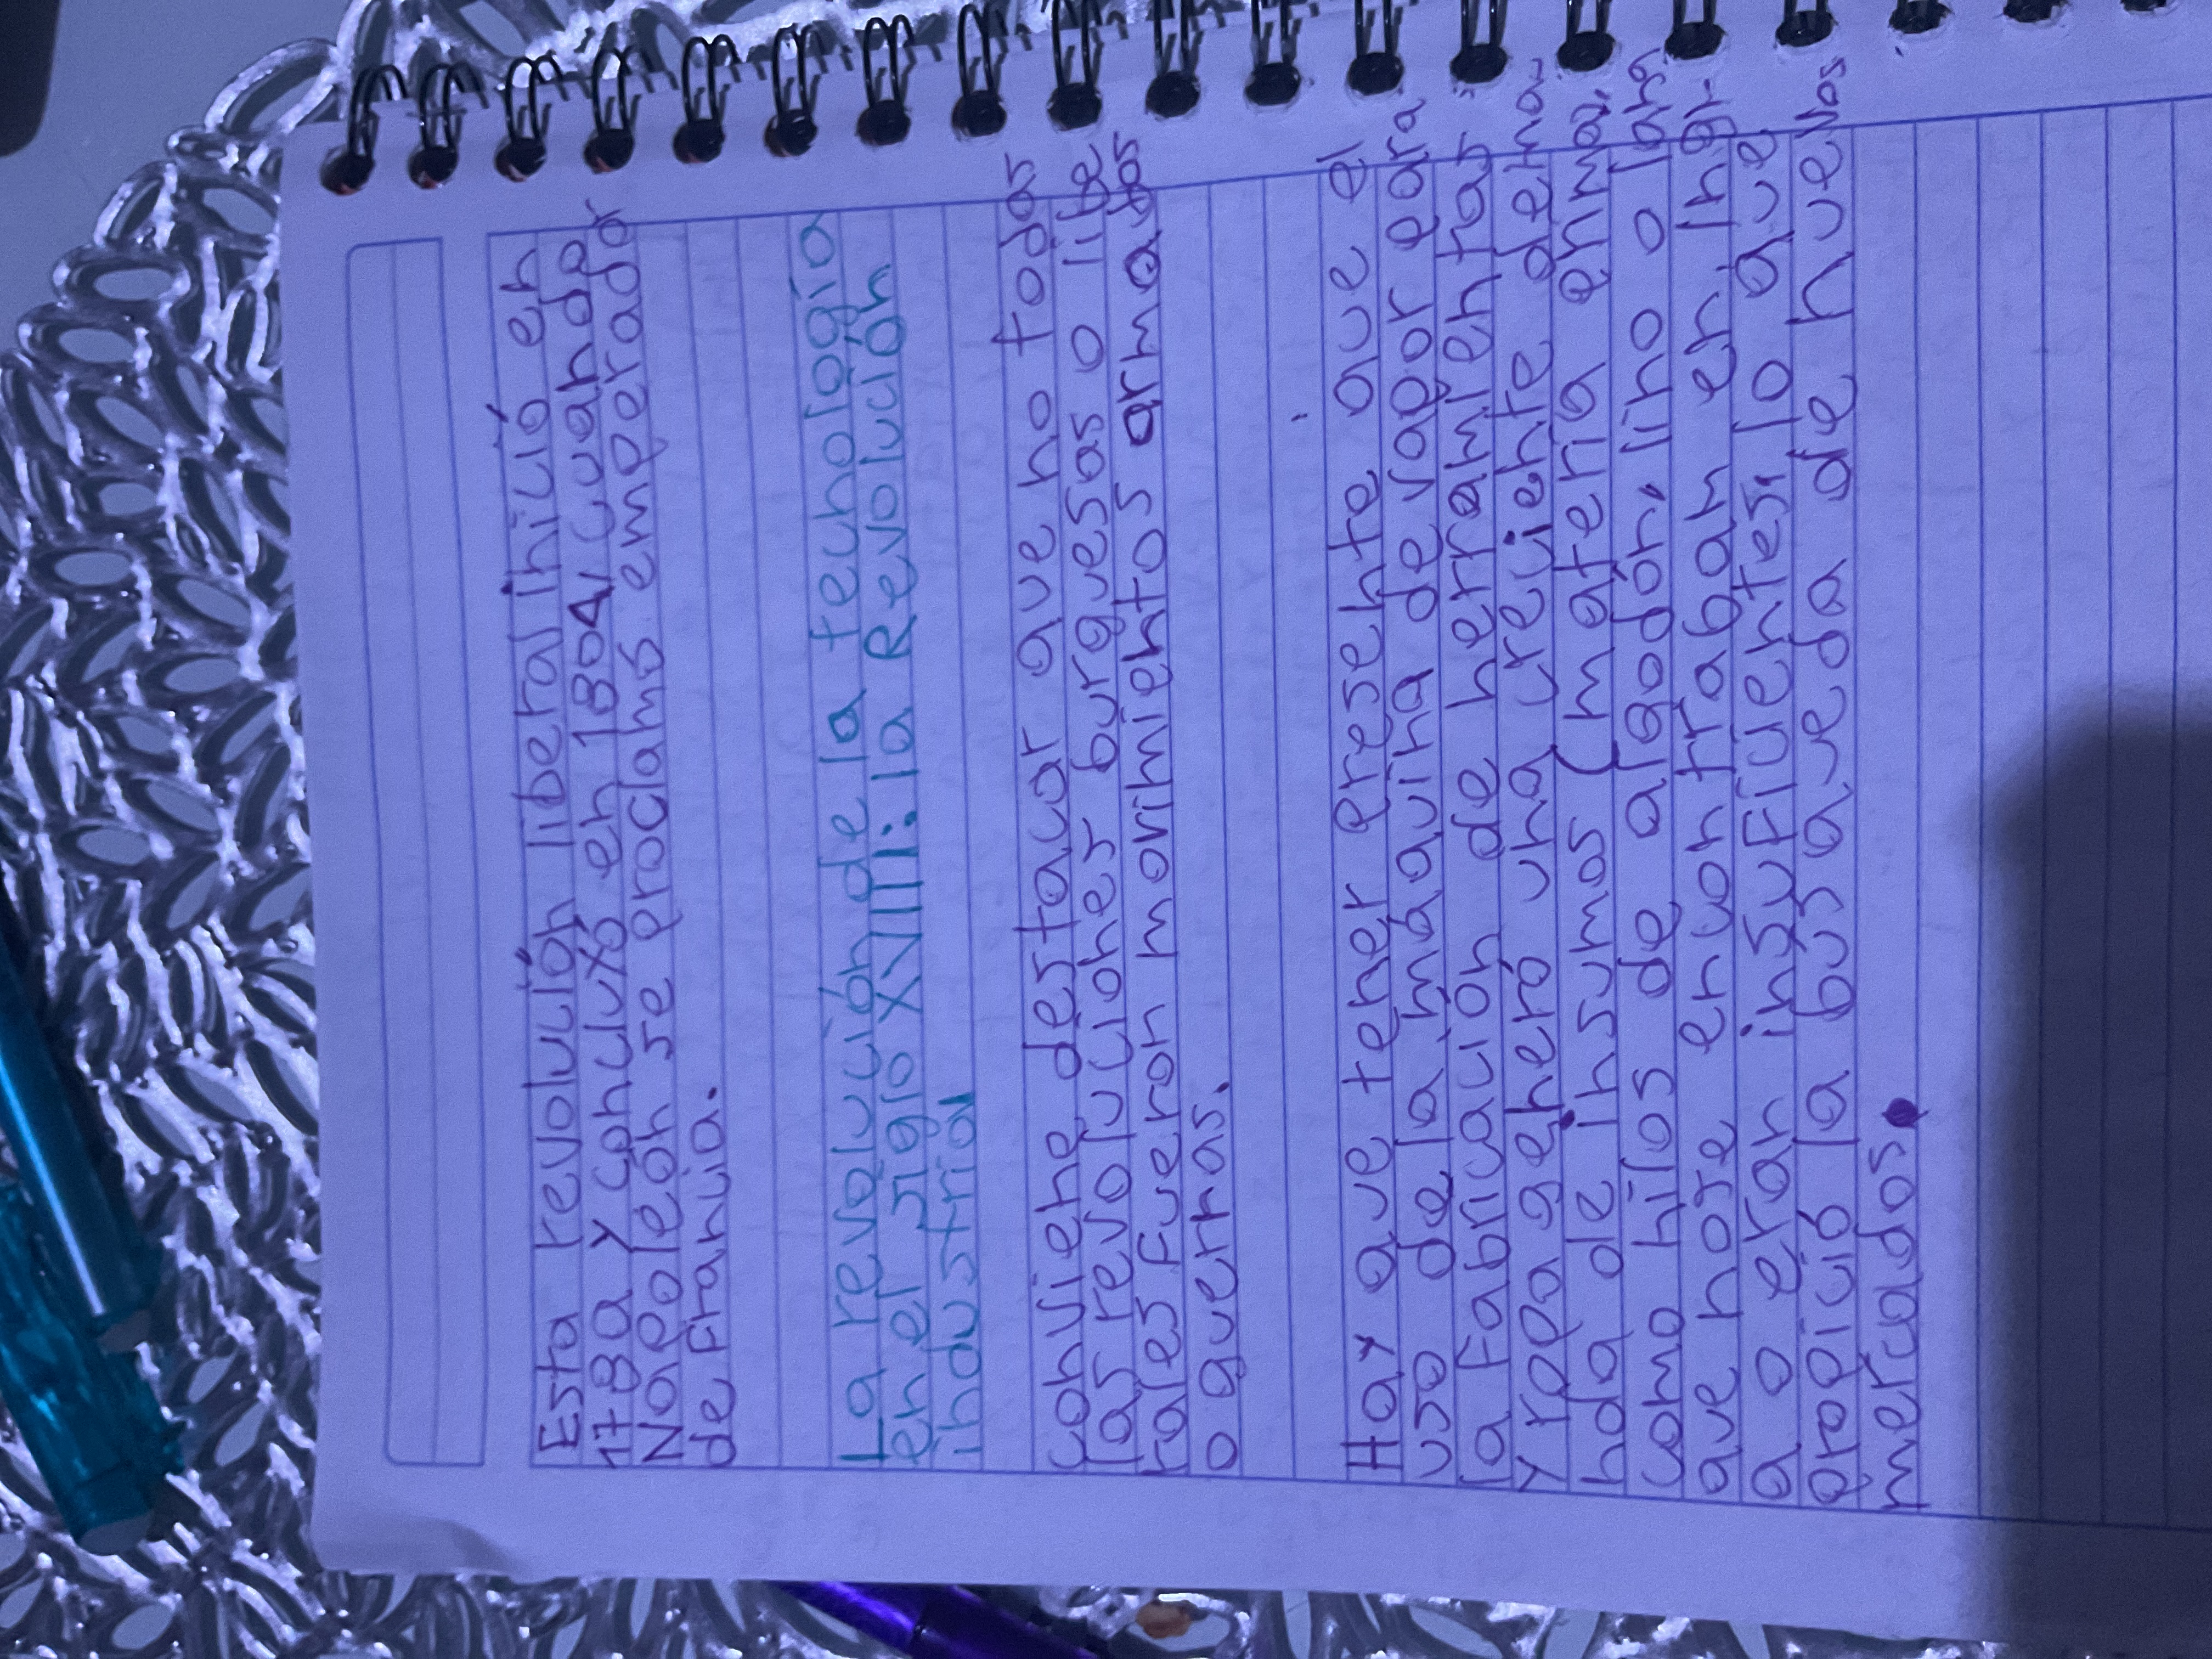 Esta revolución liberal inició en
1789 y concluyó en 1804 cuando
Napoleón se proclamó emperador
de Francia.
La revolución de la tecnología
en el siglo XVIII: la Revolución
industrial
Conviene destacar que no todas
las revoluciones burguesas o libe
rales fueron movimientos armados
o guerras.
Hay que tener presente que el
uso de la máquina de vapor para
la fabricación de herramientas
y ropa generó una creciente dema
nda de insumos (materia prima,
como hilos de algodón, lino o lana
que no se encontraban en Ingl-
a o eran insuficientes, lo que
propició la busqueda de nuevos
mercados.